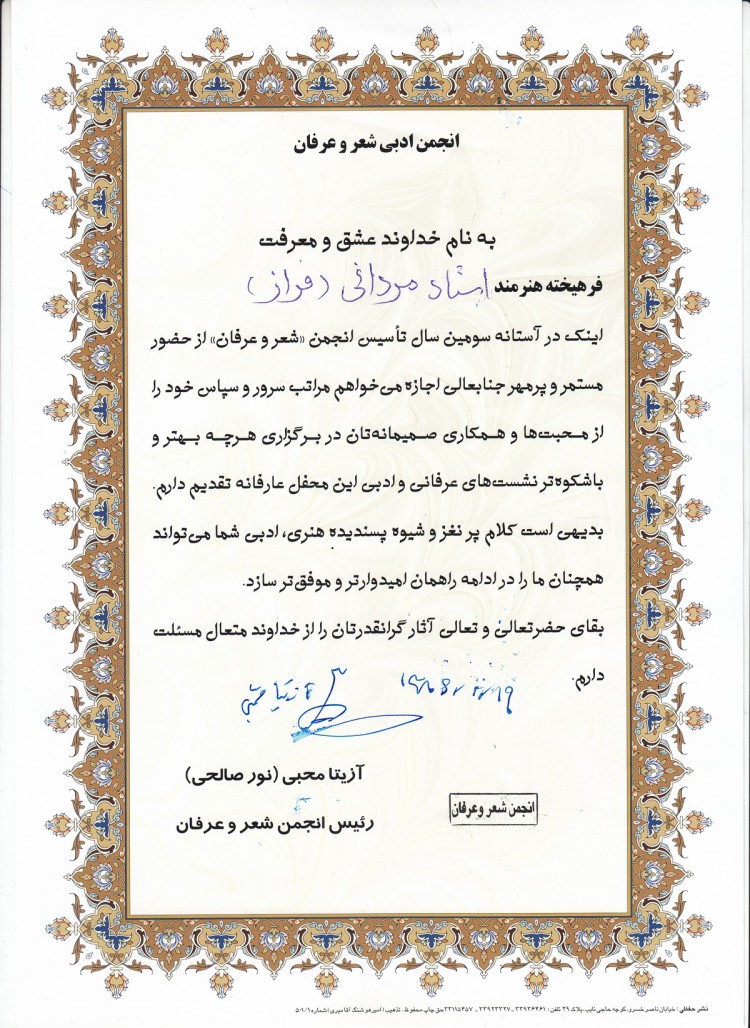 انجمن ادبی شعر و عرفان
به نام خداوند عشق و معرفت
فرهیخته هنرمند استاد مردانی (فراز)
اینک در آستانه سومین سال تأسیس انجمن «شعر و عرفان» از حضور
مستمر و پرمهر جنابعالی اجازه می‌خواهم مراتب سرور و سپاس خود را
از محبت‌ها و همکاری صمیمانه‌تان در برگزاری هرچه بهتر و
باشکوه‌تر نشست‌های عرفانی و ادبی این محفل عارفانه تقدیم دارم.
بدیهی است کلام پر نغز و شیوه پسندیده هنری، ادبی شما می‌تواند
همچنان ما را در ادامه راهمان امیدوارتر و موفق‌تر سازد.
بقای حضرتعالی و تعالی آثار گرانقدرتان را از خداوند متعال مسئلت
دارم.
آزیتا محبی
آزیتا محبی (نور صالحی)
رئیس انجمن شعر و عرفان
انجمن شعر و عرفان
نشر حفظی: خیابان ناصر خسرو، کوچه حاجی نایب، پلاک ۲۹ تلفن: ۳۳۹۳۶۴۶۱ ـ ۳۳۹۲۳۳۲۷ ـ ۳۳۱۱۵۴۵۷ حق چاپ محفوظ ـ تذهیب: امیرهوشنگ آقامیری | شماره ۵۰۱/۱